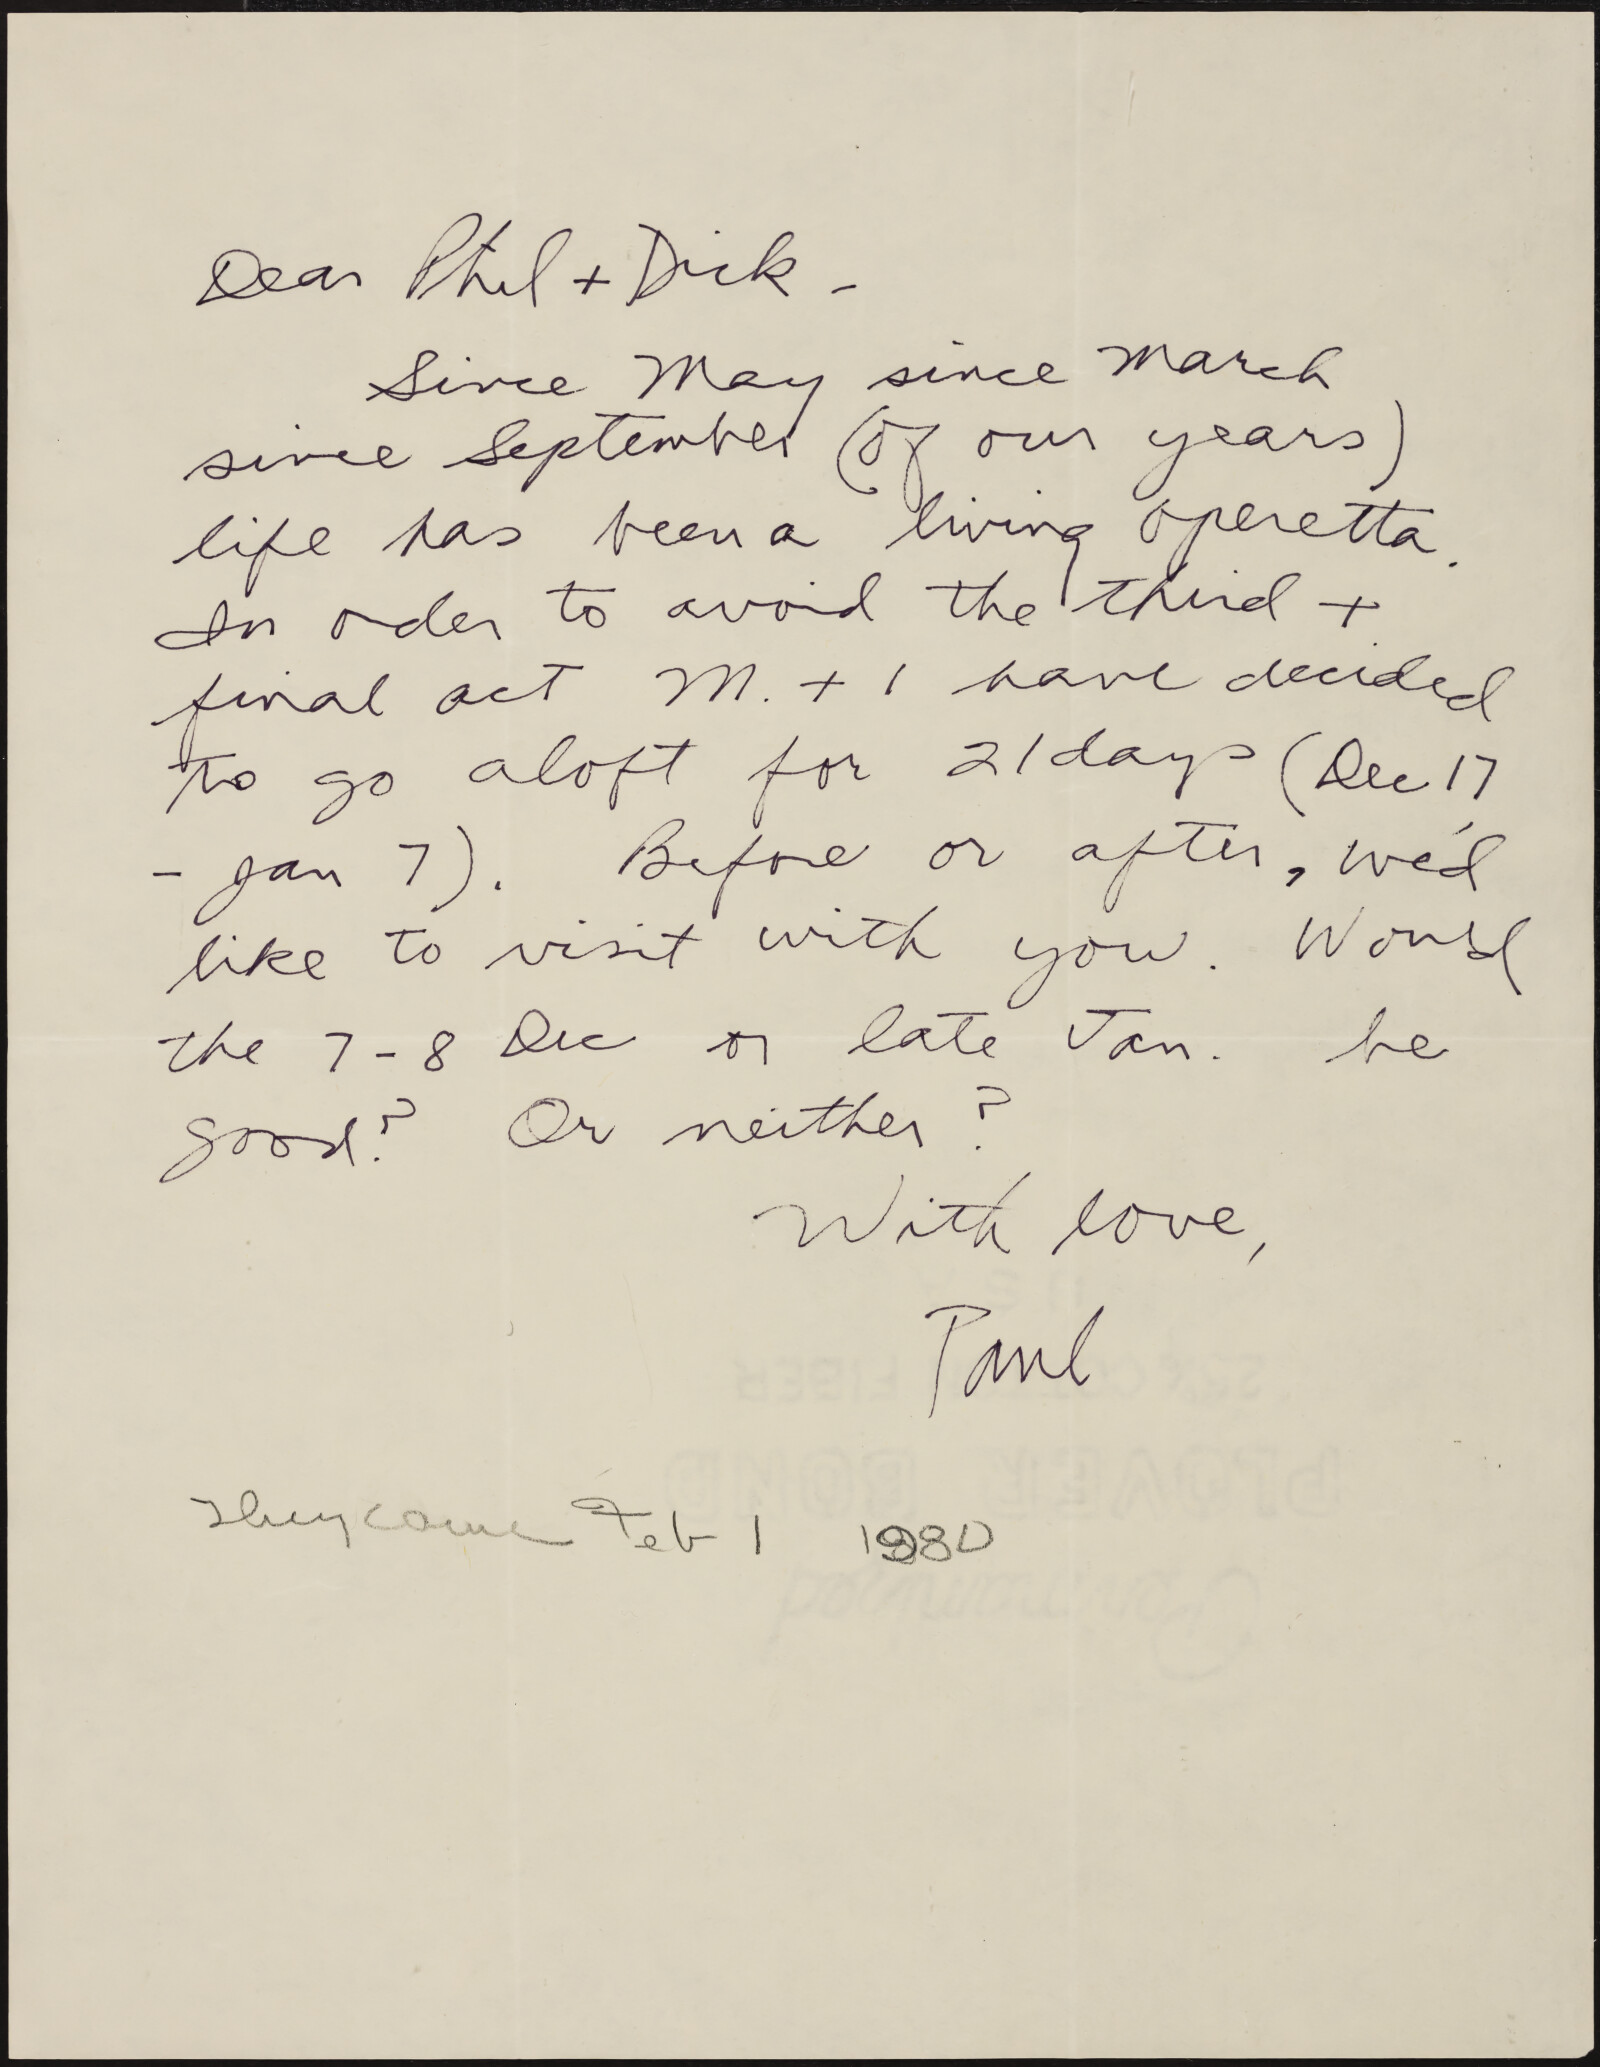 Dear Phil + Dick -
Since May since March
since September (of our years)
life has been a living operetta.
In order to avoid the third +
final act M. + I have decided
to go aloft for 21 days (Dec 17
- Jan 7). Before or after, we'd
like to visit with you. Would
the 7-8 Dec or late Jan. be
good? Or neither?
With love,
Paul
They came Feb 1 1980
25% COTTON FIBER
PLOVER BOND